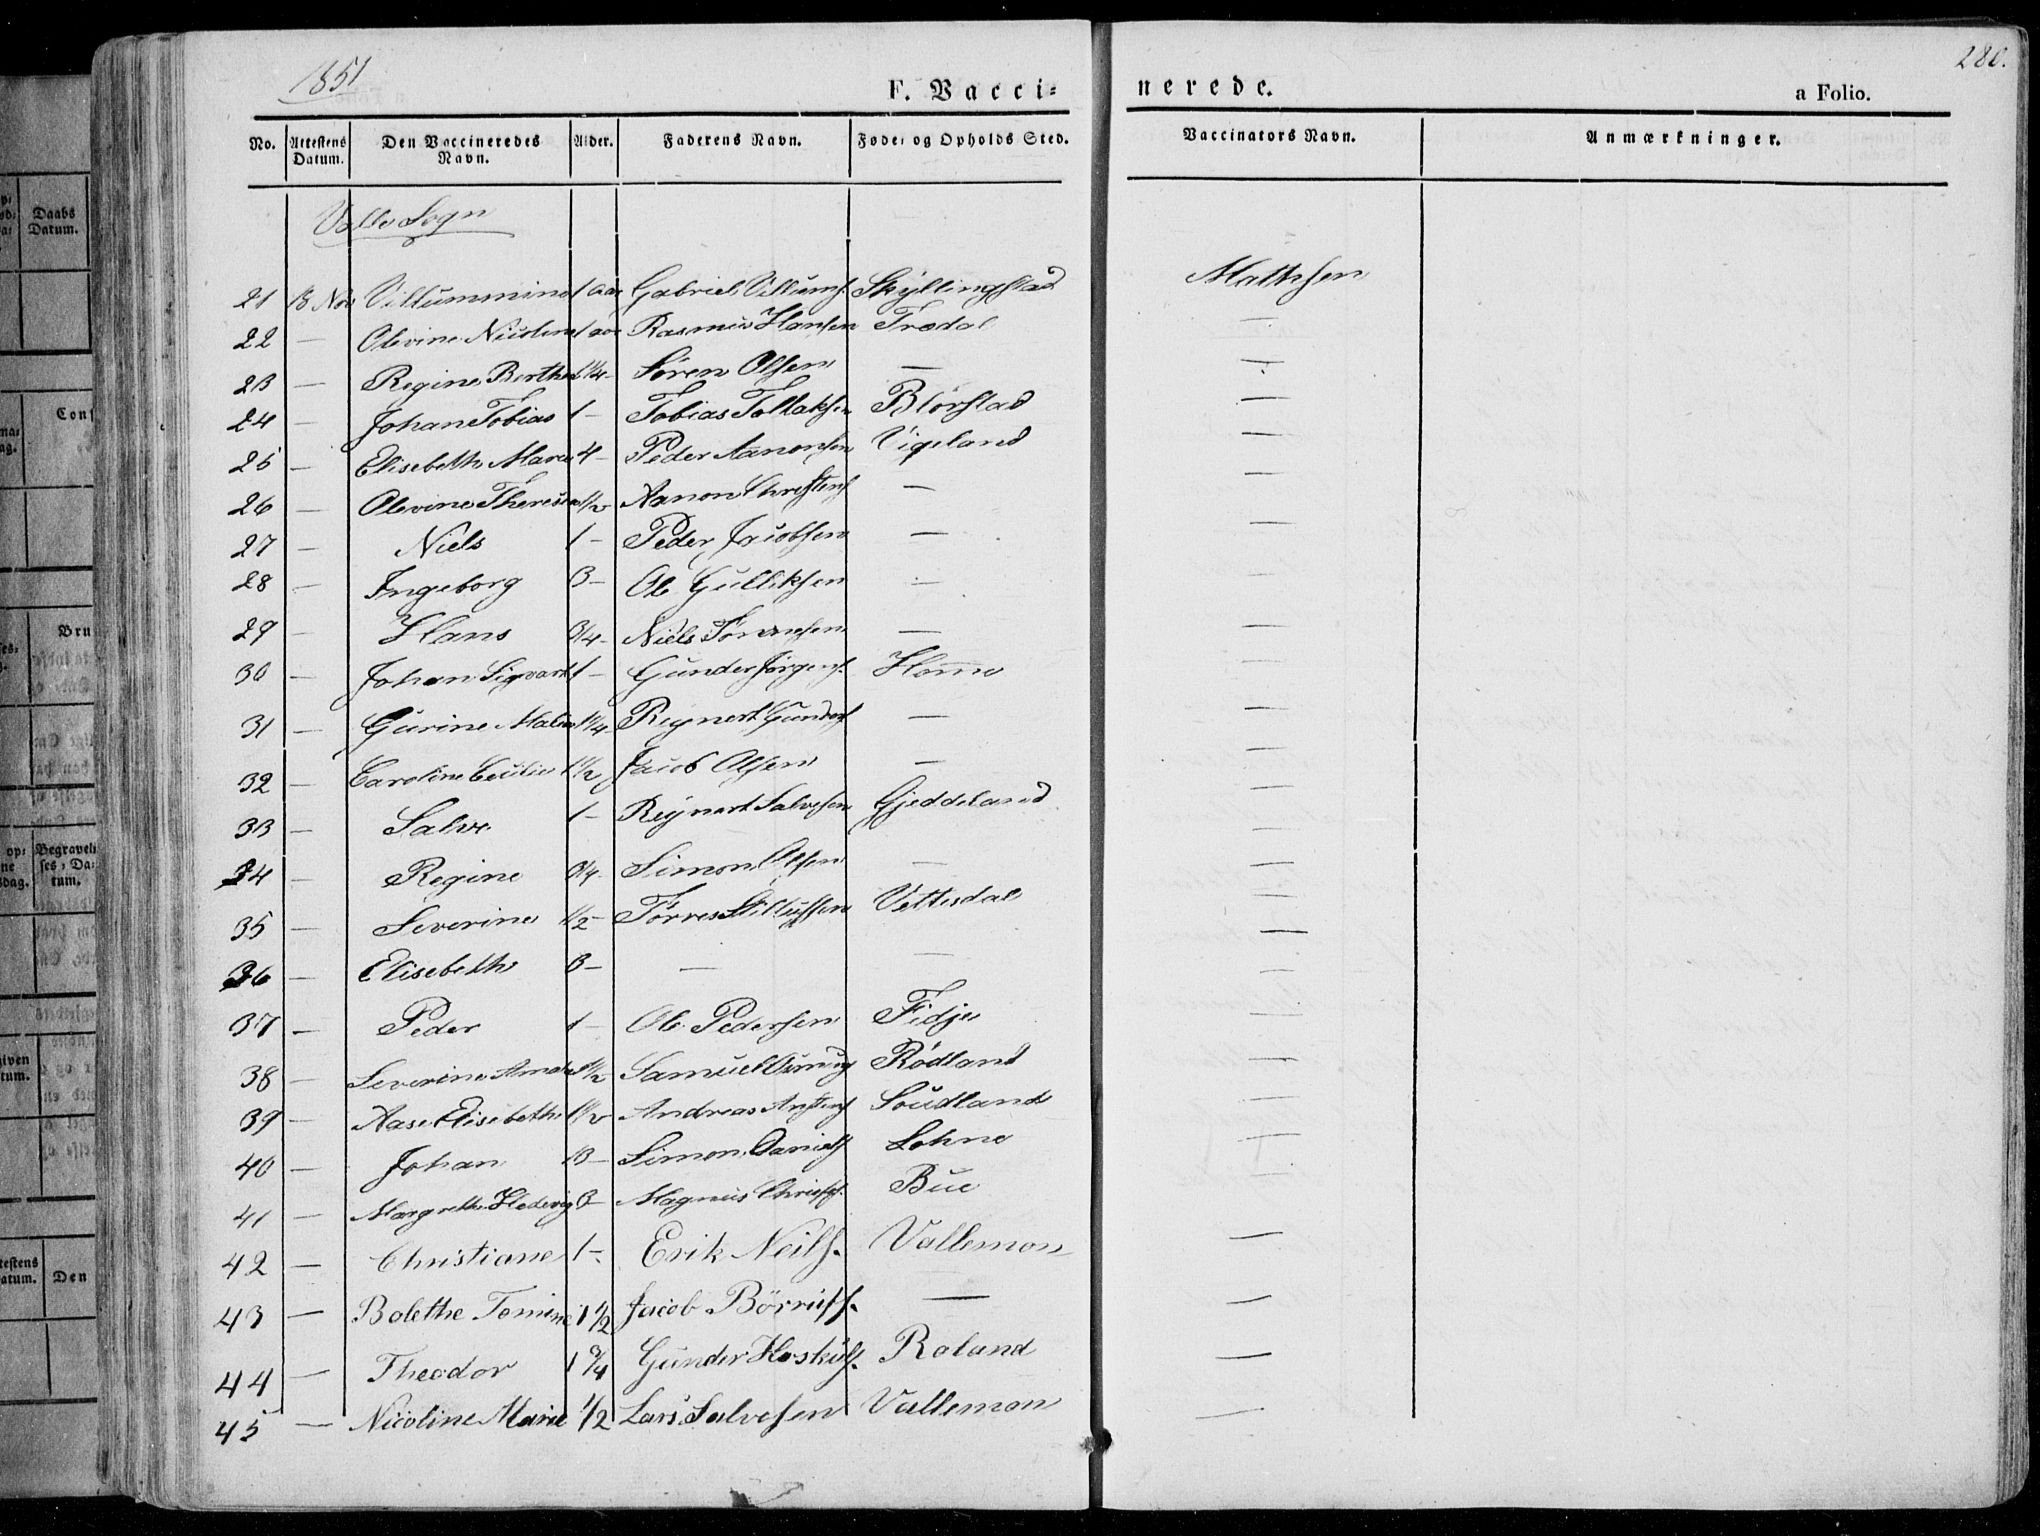 1851
280.
F. Vacci=
nerede.
a Folio.
No. Attestens Datum. Den Vaccineredes Navn. Alder. Faderens Navn. Føde= og Opholds Sted. Vaccinators Navn. Anmærkninger.
Valle Sogn
21 18 Nov Villummine 1 aar Gabriel Villums. Skyllingstad Mathsen
22 — Olevine Nicoline 1 aar Rasmus Hansen Trædal —
23 — Regine Berthea 1 1/4 - Søren Olsen — —
24 — Johan Tobias 1 - Tobias Tollaksen Blørstad —
25 — Elisebeth Marie 4 - Peder Aanonsen Vigeland —
26 — Olevine Therese 1/2 Aanon Christens — —
27 — Niels 1 - Peder Jacobsen — —
28 — Ingeborg 3 - Ole Gulliksen — —
29 — Hans 3/4 - Niels — —
30 — Johan Sigvart 1 - Gunder Jørgens. Homme —
31 — Gurine Malene 1 1/4 - Reynert Gunders — —
32 — Caroline Cecilie 1 1/2 Jacob Olsen — —
33 — Salve 1 - Reynert Salvesen Gjeddeland —
34 — Regine 3/4 - Simon Olsen — —
35 — Severine 1/2 - Torres Vettesdal —
36 — Elisebeth 3 - — — —
37 — Peder 1 - Ole Pedersen Fidje —
38 — Severine 1 1/2 Samuel Rødland —
39 — Aase Elisebeth 1 1/2 Andreas Soudland —
40 — Johan Simon Daniels Lohne —
41 — Margrethe Hedevig 3 - Magnus Bue
42 — Christiane 1 - Erik Neils. Vallemon —
43 — Bolethe Tomine 1 1/2 Jacob Børrufs. — —
44 — Theodor 1 3/4 Gunder Hoskuls. Roland —
45 — Nicoline Marie 1/2 Lars Salvesen Vallemon —